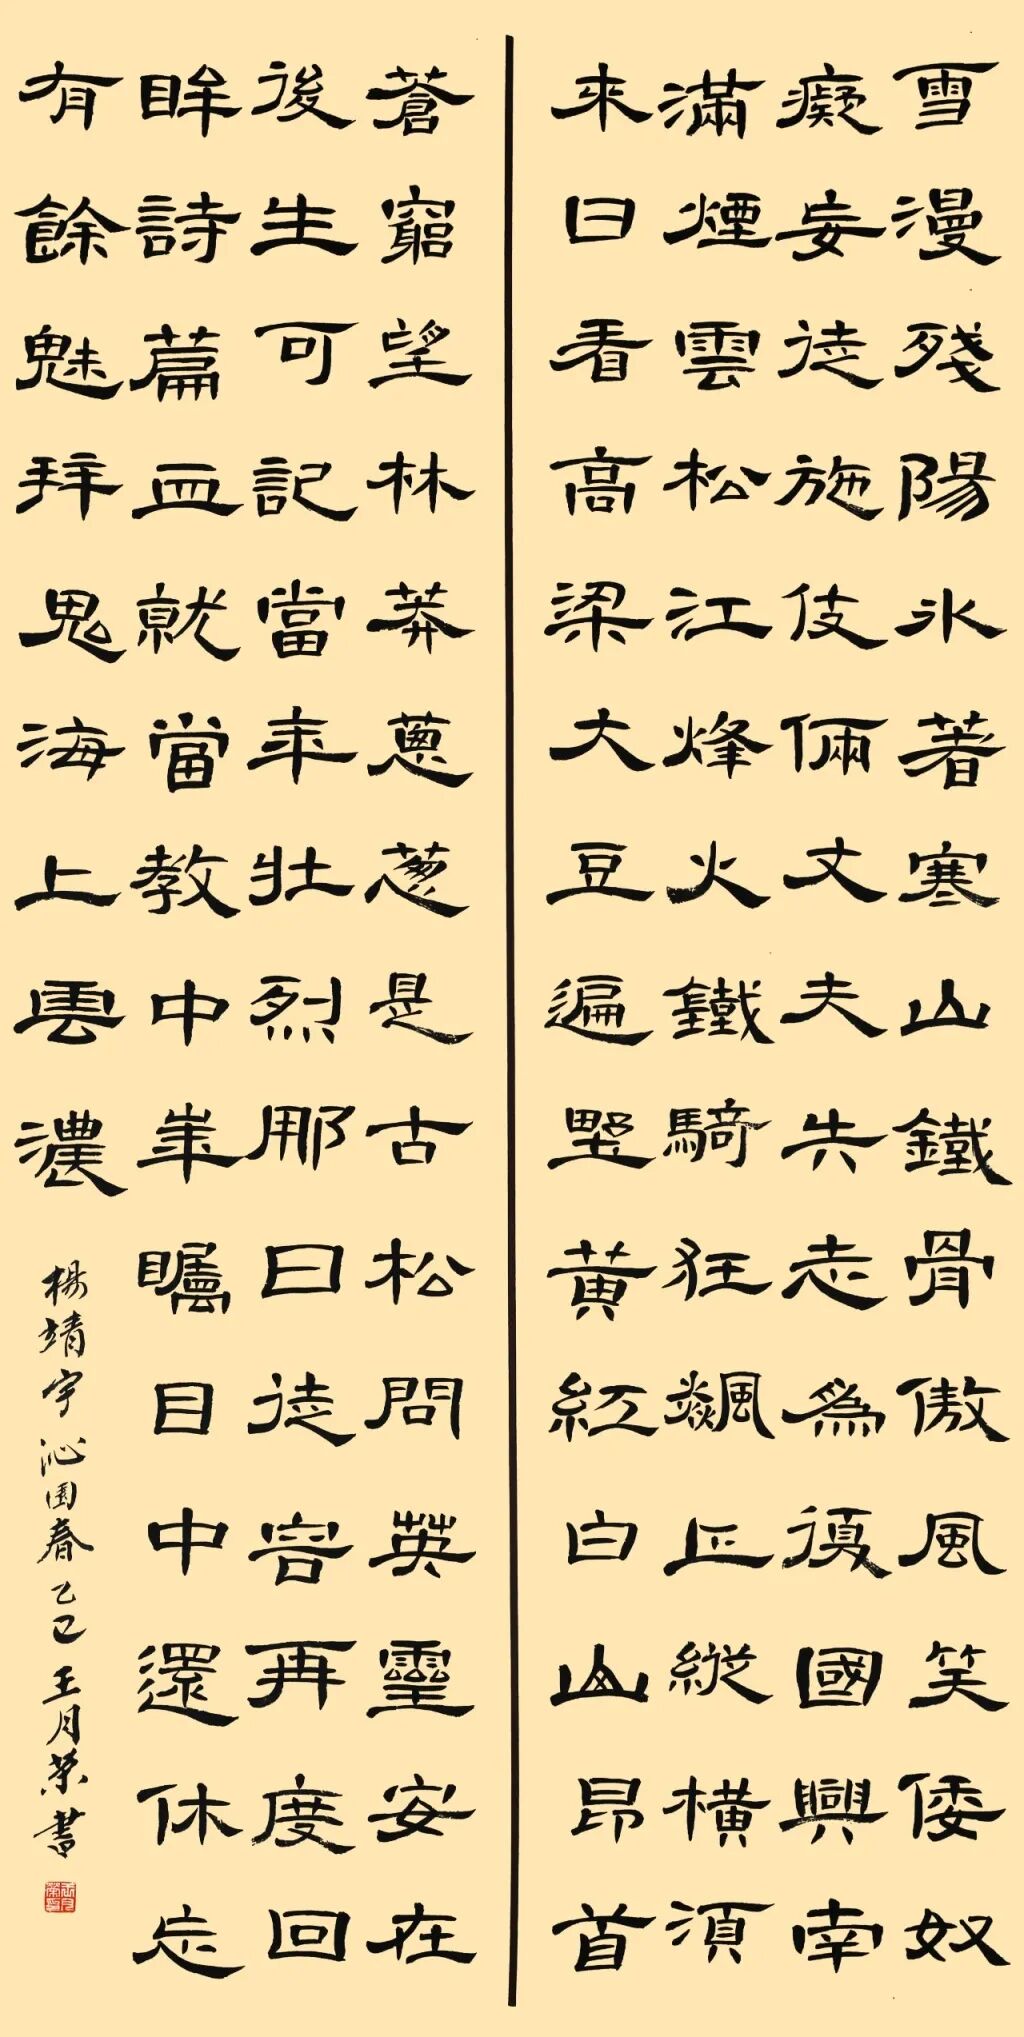 雪漫殘陽冰著寒山鐵骨傲風笑倭奴
癡妄徒施伎倆丈夫矢志為復國興南
滿煙雲松江烽火鐵騎狂飆正縱橫須
來日看高梁大豆遍野黃紅白山昂首
蒼窮望林莽蔥蔥是古松問英靈安在
後生可記當年壯烈那日從容再度回
眸詩篇血就當教中華矚目中還休忘
有餘魅拜鬼海上雲濃
楊靖宇沁園春乙巳王月榮書